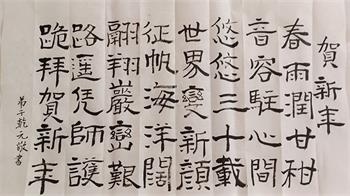 賀新年
春雨潤甘柑
音容駐心間
悠悠三十載
世界變新顏
征帆海洋闊
翩翔嚴巒艱
路遥凭師護
跪拜賀新年
弟子乾元敬書